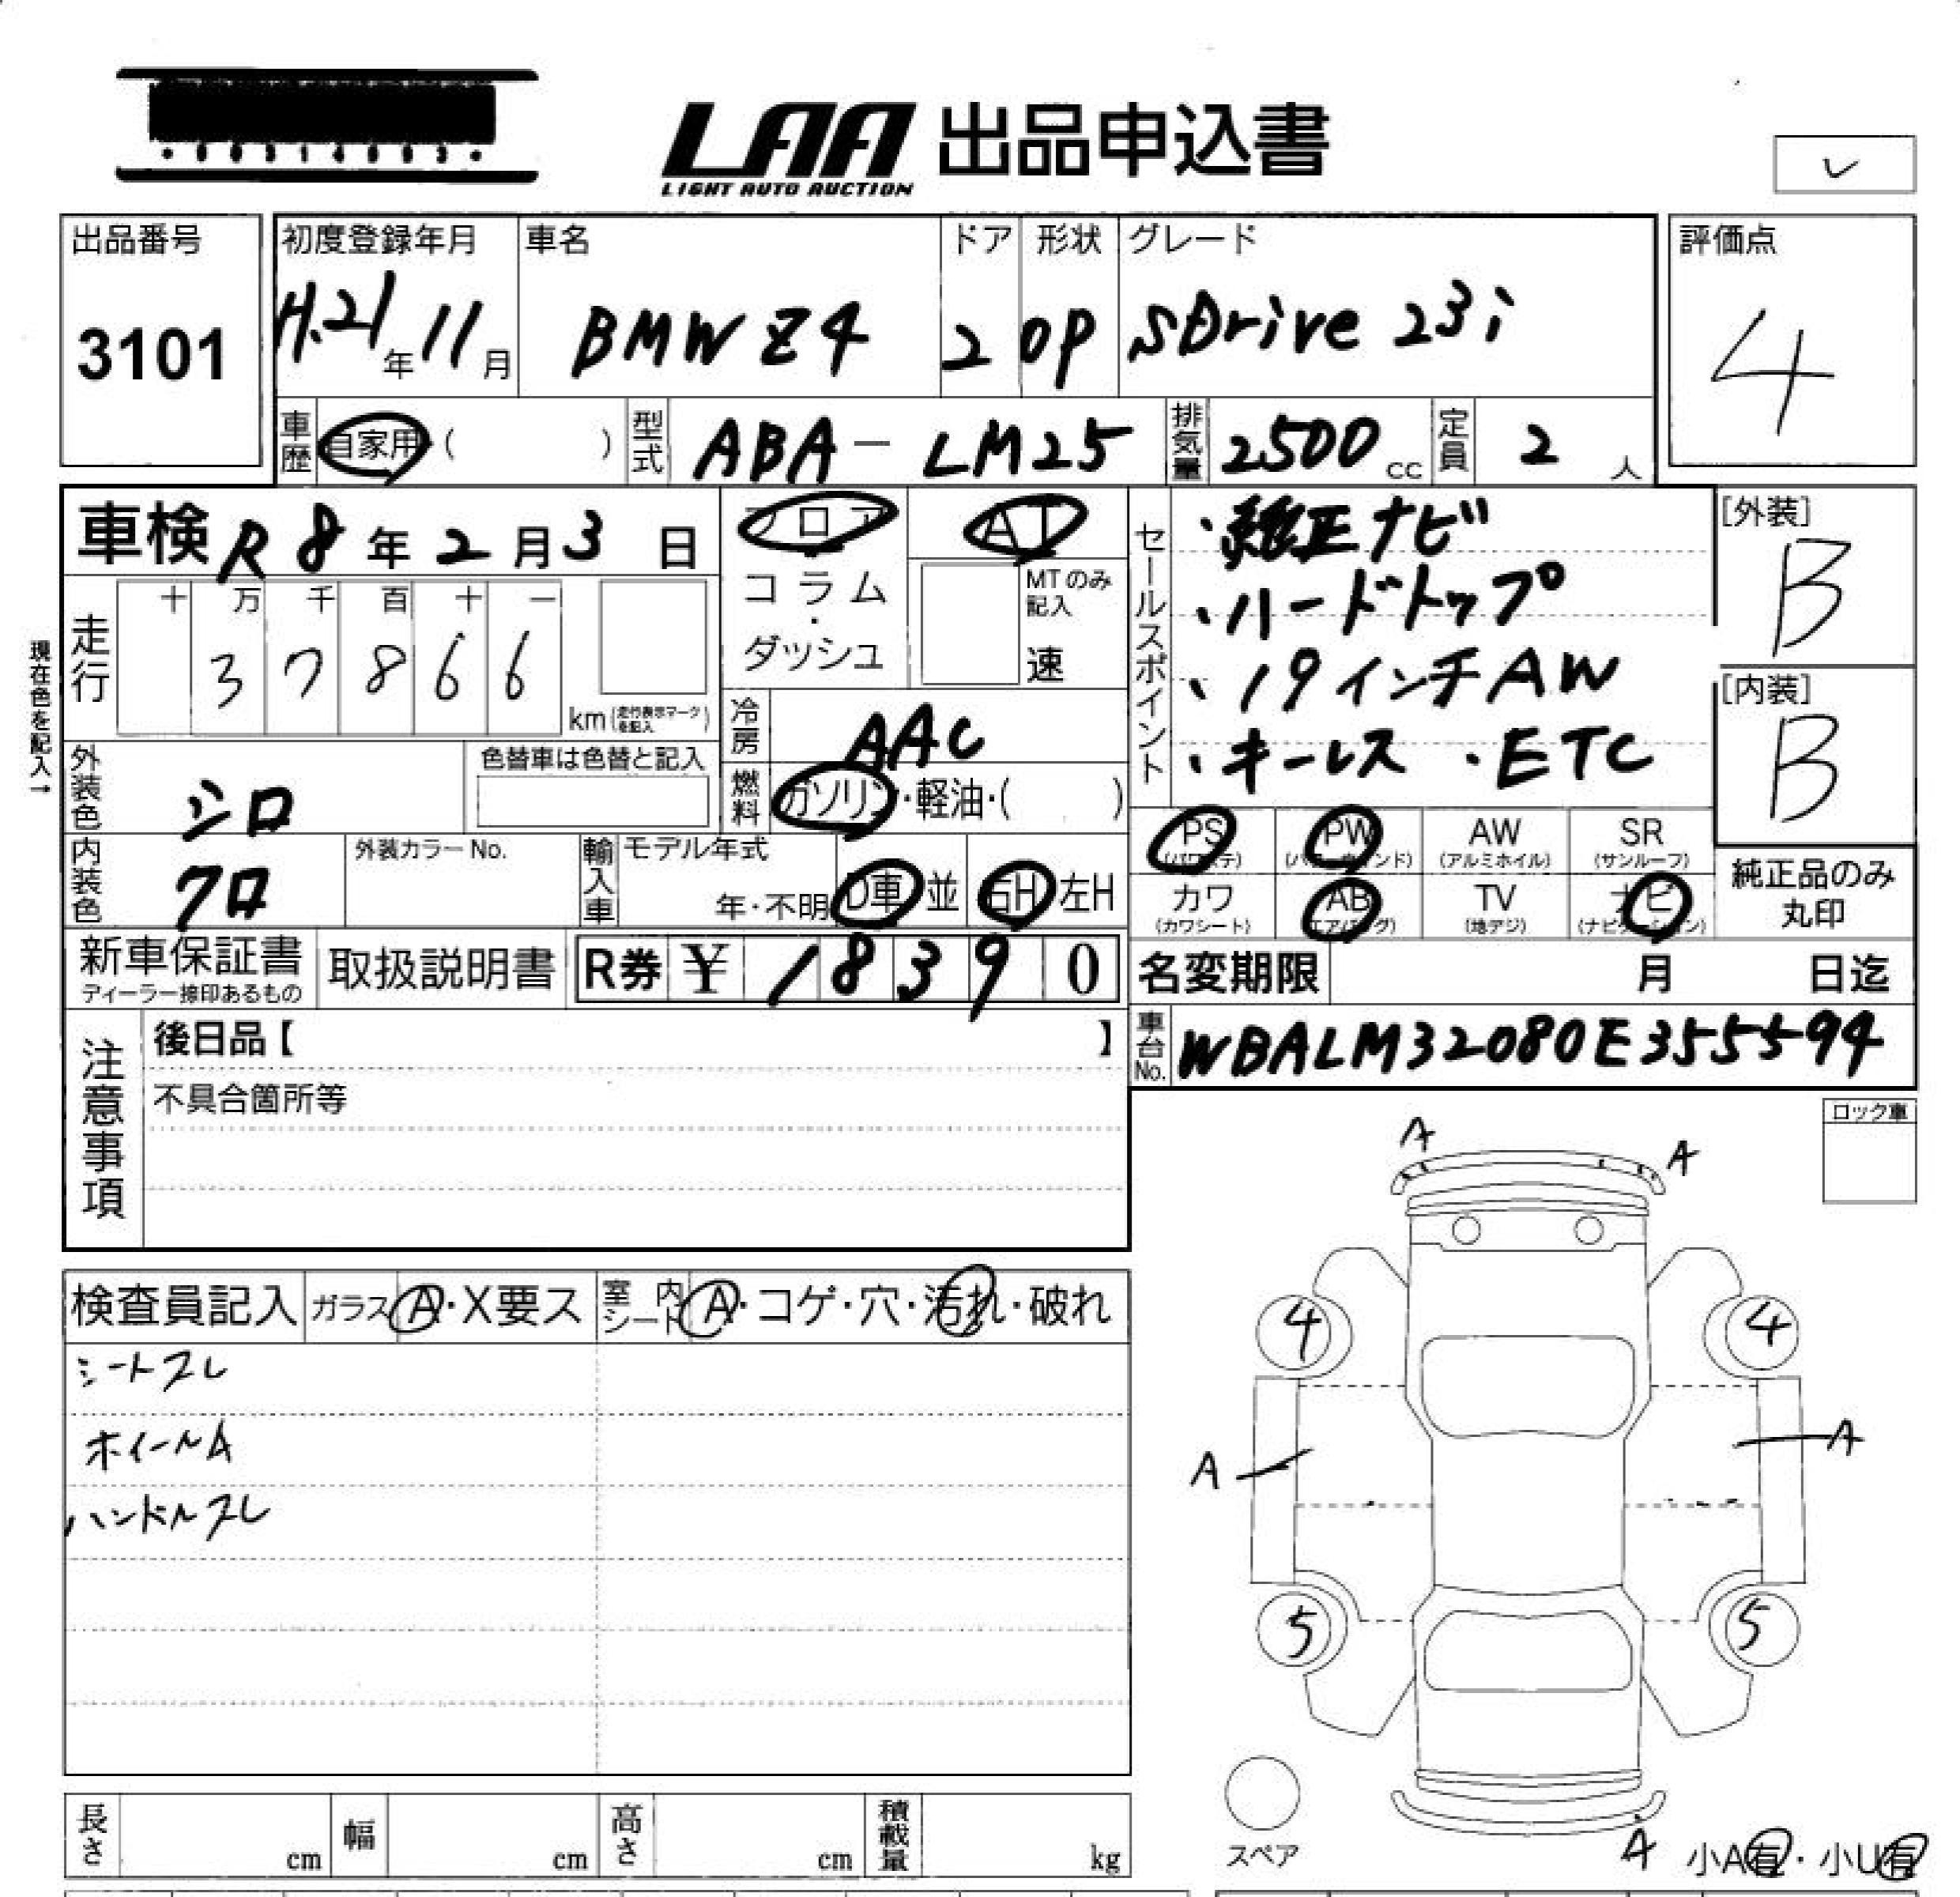 LAA 出品申込書
LIGHT AUTO AUCTION
レ
出品番号
3101
初度登録年月
H.21年11月
車名
BMW Z4
ドア
2
形状
OP
グレード
SDrive 23i
評価点
4
車歴 自家用・( )
型式 ABA-LM25
排気量 2500 cc
定員 2 人
車検 R8年2月3日
フロア・コラム・ダッシュ
AT
MTのみ記入
速
セールスポイント
・純正ナビ
・ハードトップ
・19インチAW
・キーレス ・ETC
[外装]
B
[内装]
B
現在色を記入→
走行
十 万 千 百 十 一
3 7 8 6 6
km(走行表示マークを記入)
冷房 AAC
燃料 ガソリン・軽油・( )
外装色 シロ
色替車は色替と記入
内装色 クロ
外装カラーNo.
輸入車
モデル年式
年・不明
D車 並
右H 左H
PS (パワステ)
PW (パワーウインド)
AW (アルミホイル)
SR (サンルーフ)
カワ (カワシート)
AB (エアバッグ)
TV (地デジ)
ナビ (ナビゲーション)
純正品のみ丸印
新車保証書
ディーラー捺印あるもの
取扱説明書
R券 ¥ 18390
名変期限 月 日迄
車台No. WBALM32080E355594
注意事項
後日品【 】
不具合箇所等
ロック車
検査員記入
ガラス A・X要ス
室内シート A・コゲ・穴・汚れ・破れ
シートスレ
ホイールA
ハンドルスレ
A
A
4
4
A
A
5
5
スペア
A
小A有・小U有
長さ cm
幅 cm
高さ cm
積載量 kg